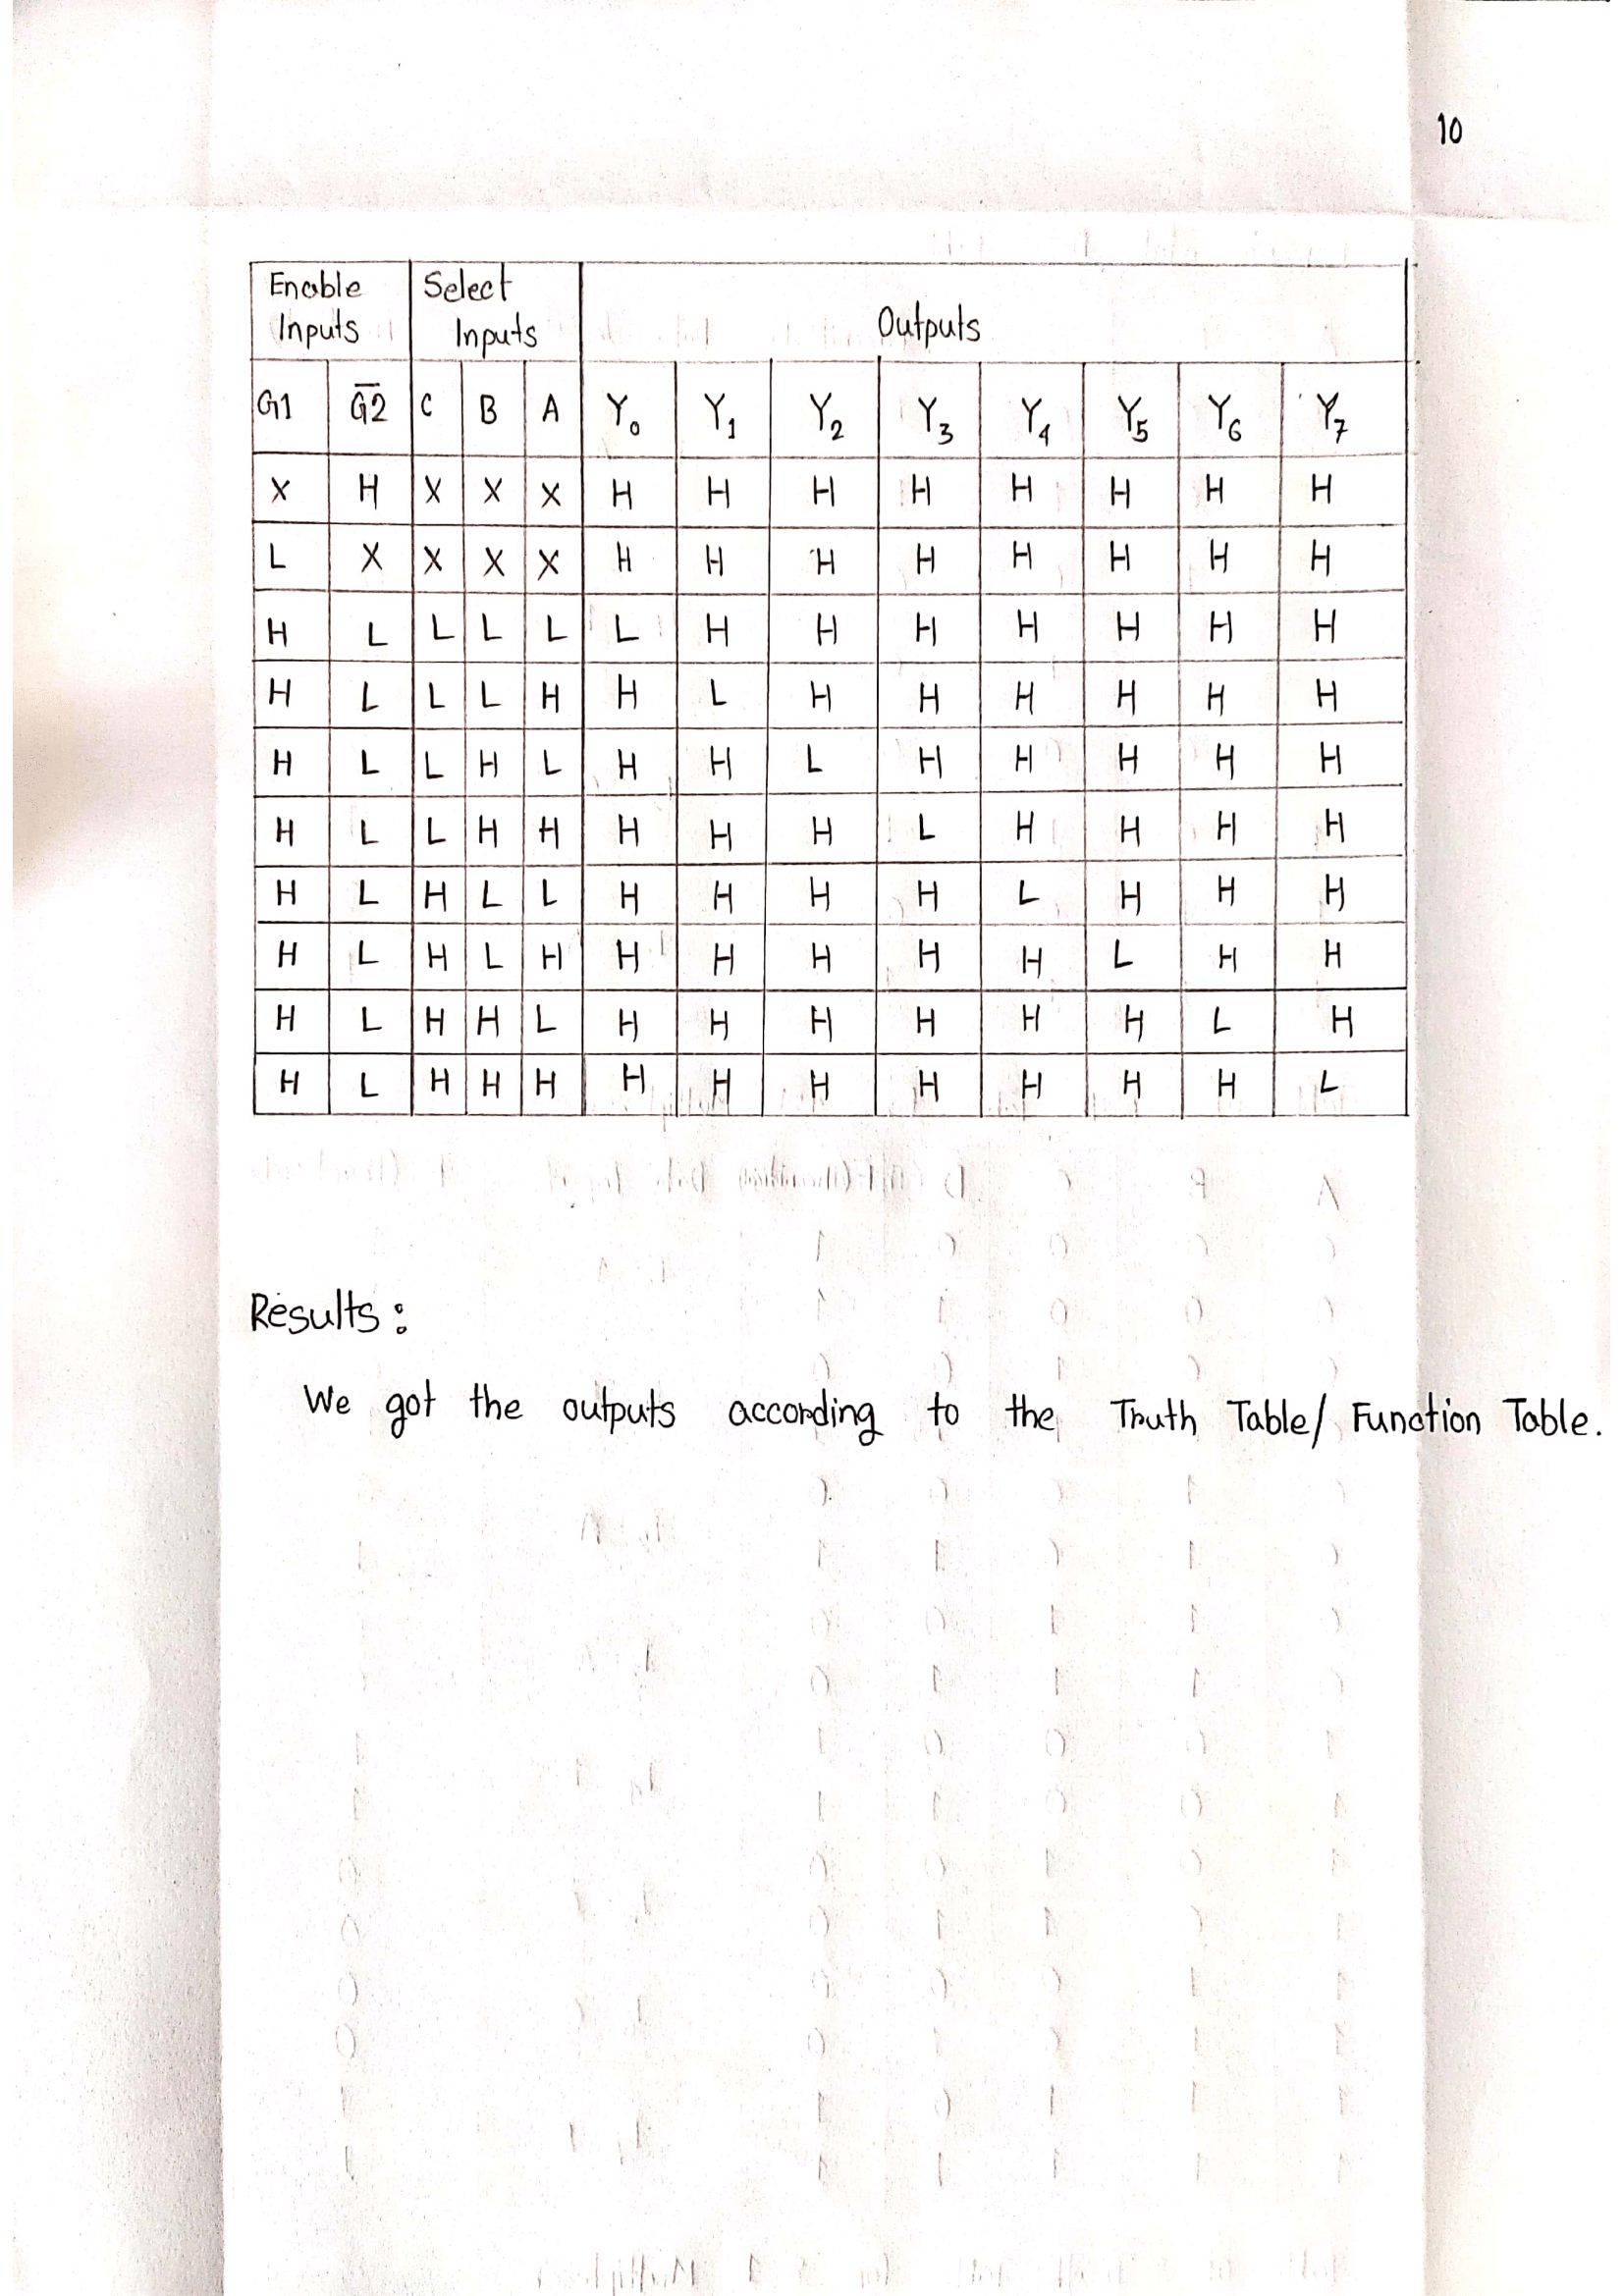 10
Enable Inputs Select Inputs Outputs
G1 G̅2 C B A Y₀ Y₁ Y₂ Y₃ Y₄ Y₅ Y₆ Y₇
X H X X X H H H H H H H H
L X X X X H H H H H H H H
H L L L L L H H H H H H H
H L L L H H L H H H H H H
H L L H L H H L H H H H H
H L L H H H H H L H H H H
H L H L L H H H H L H H H
H L H L H H H H H H L H H
H L H H L H H H H H H L H
H L H H H H H H H H H H L
Results:
We got the outputs according to the Truth Table/ Function Table.